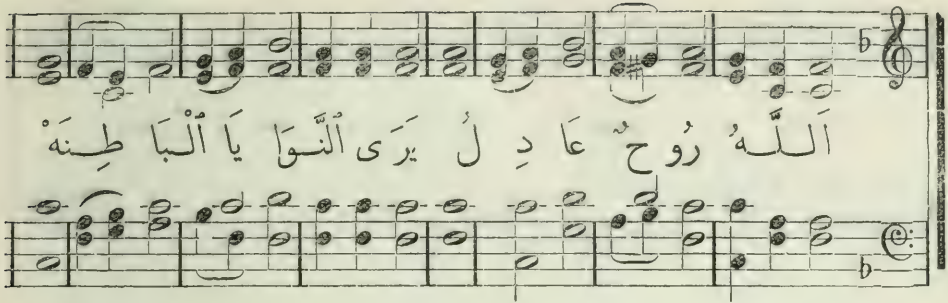 اَللَّهُ رُوحٌ عَا دِ لُ يَرَى ٱلنَّوَا يَا ٱلْبَا طِنَهْ